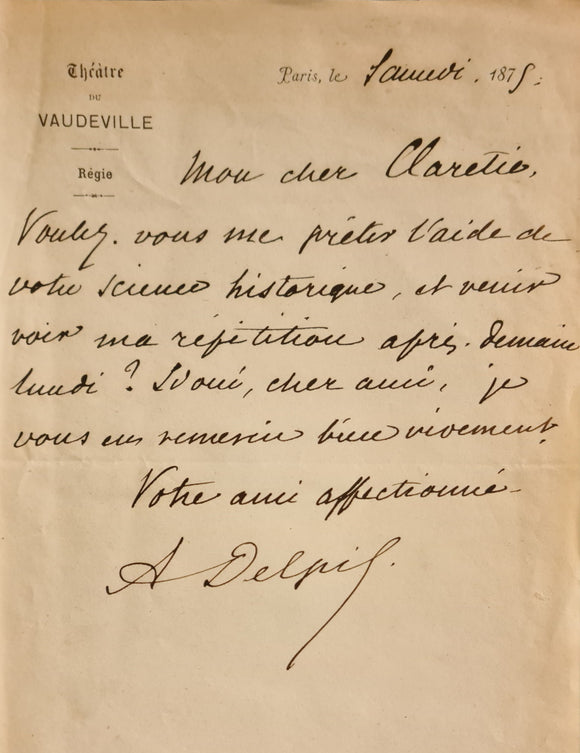 Théâtre
DU
VAUDEVILLE
Régie
Paris, le Samedi. 1875.
Mon cher Claretie,
Voulez-vous me prêter l'aide de
votre science historique, et venir
voir ma répétition après-demain
lundi ? Si oui, cher ami, je
vous en remercie bien vivement.
Votre ami affectionné
A Delpit.